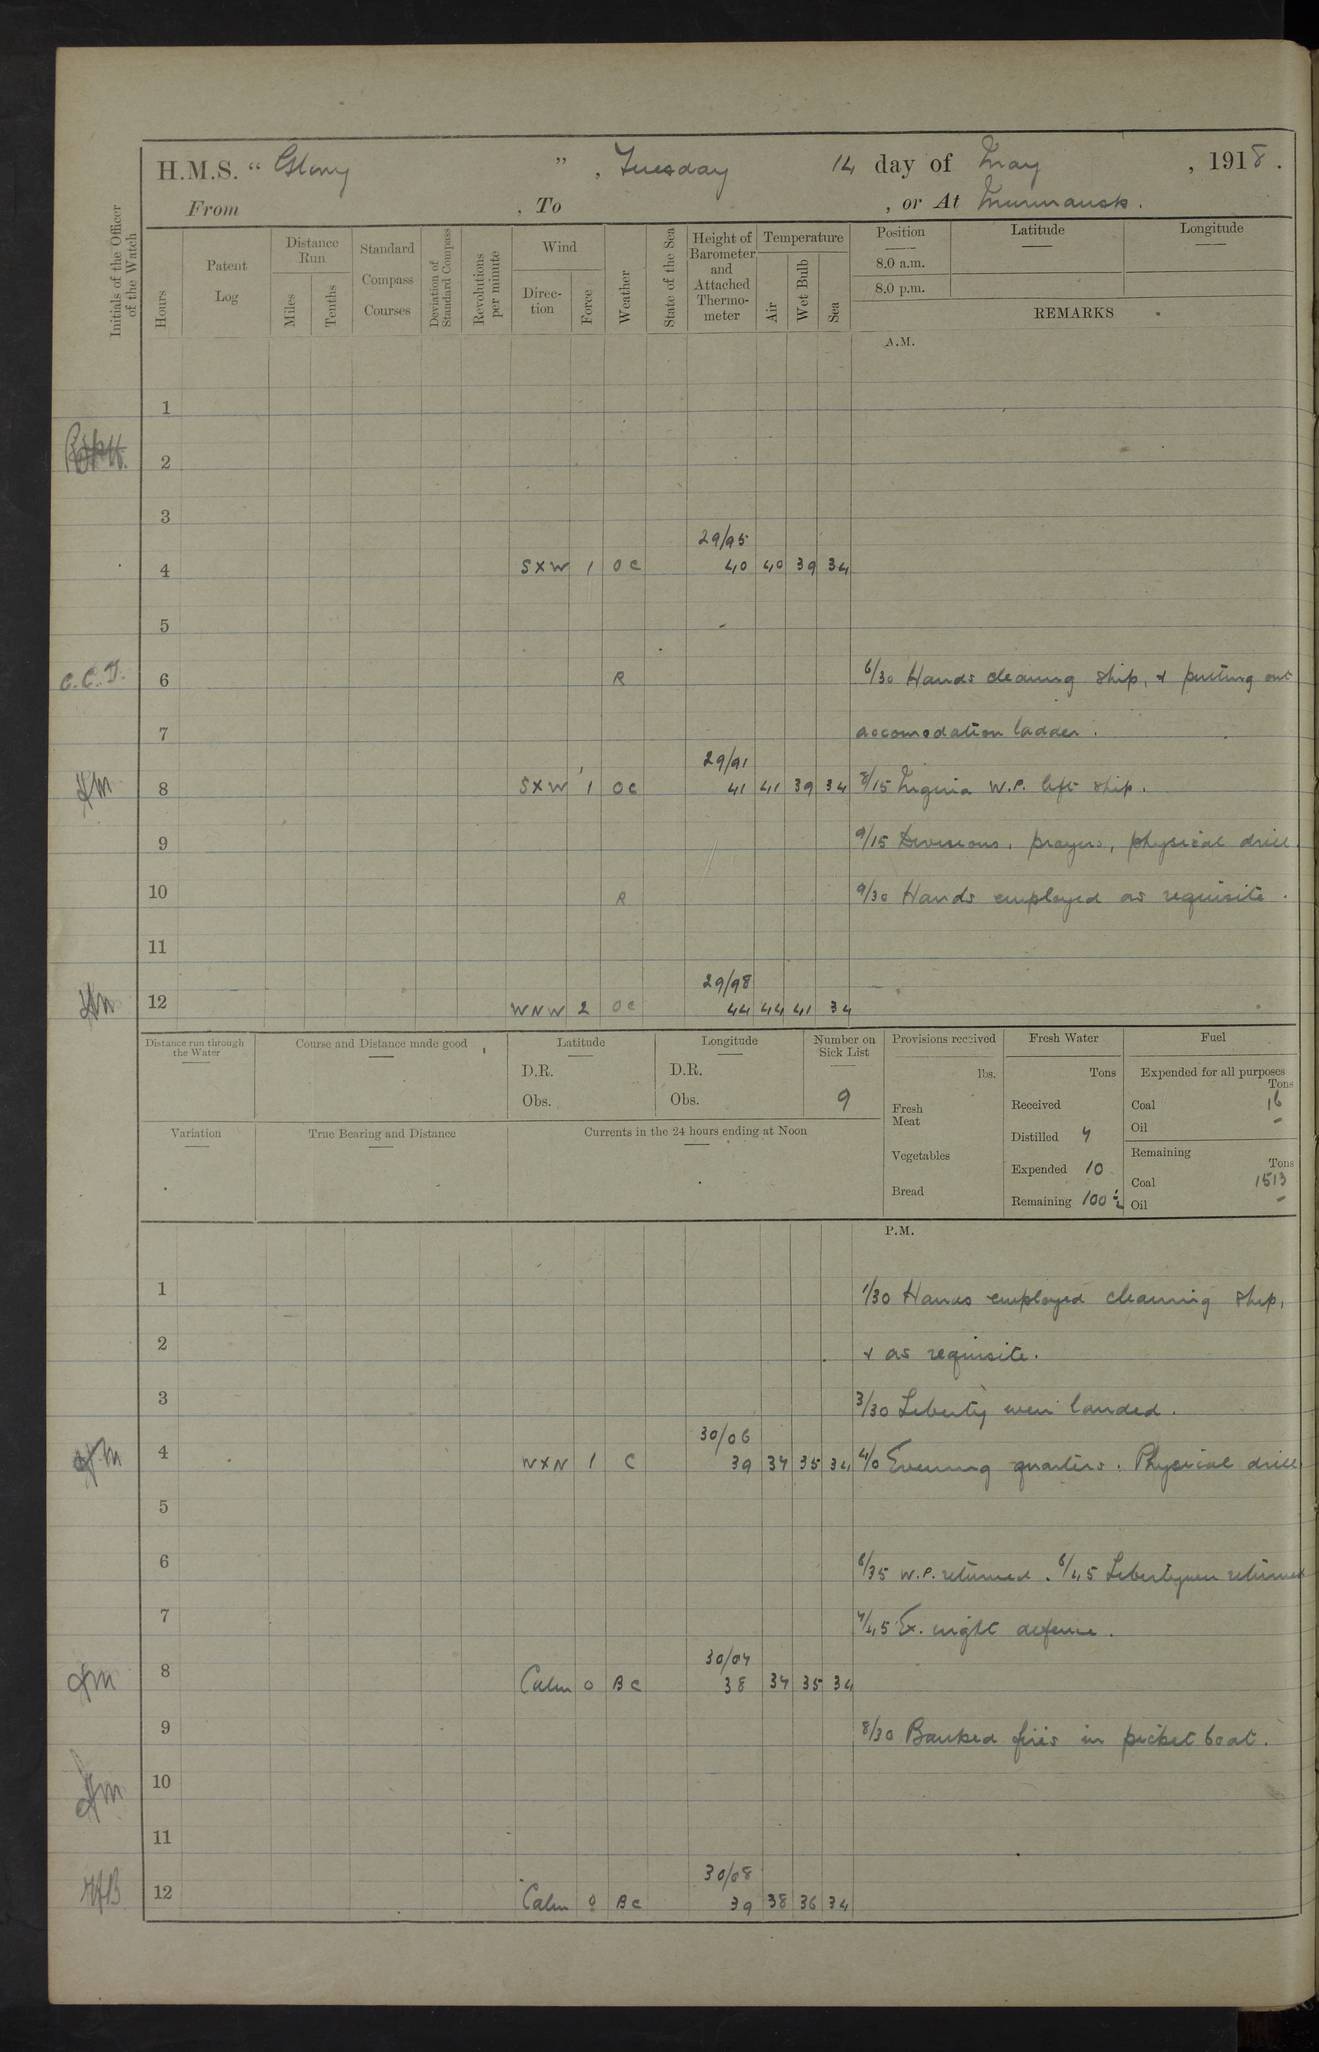 H.M.S. “ Glory ” , Tuesday 14 day of May , 1918 .
From , To , or At Murmansk .
Initials of the Officer of the Watch
Hours
Patent Log
Distance Run
Miles
Tenths
Standard Compass Courses
Deviation of Standard Compass
Revolutions per minute
Wind
Direction
Force
Weather
State of the Sea
Height of Barometer and Attached Thermometer
Temperature
Air
Wet Bulb
Sea
Position
8.0 a.m.
8.0 p.m.
Latitude
Longitude
REMARKS
A.M.
1
2
3
29/95
4 SXW 1 OC 40 40 39 34
5
C.C.D. 6 R 6/30 Hands cleaning ship, & putting out
7 accomodation ladder .
29/91
8 SXW 1 OC 41 41 39 34 8/15 W.P. left ship .
9 9/15 Divisions, prayers, physical drill.
10 R 9/30 Hands employed as requisite .
11
29/98
12 WNW 2 OC 44 44 41 34
Distance run through the Water
Course and Distance made good
Latitude
D.R.
Obs.
Longitude
D.R.
Obs.
Number on Sick List
9
Variation
True Bearing and Distance
Currents in the 24 hours ending at Noon
Provisions received
lbs.
Fresh Meat
Vegetables
Bread
Fresh Water
Tons
Received
Distilled 7
Expended 10
Remaining 100½
Fuel
Expended for all purposes
Tons
Coal 16
Oil -
Remaining
Tons
Coal 1513
Oil -
P.M.
1 1/30 Hands employed cleaning ship,
2 & as requisite .
3 3/30 Liberty men landed .
30/06
4 WXN 1 C 39 37 35 34 4/0 Evening quarters . Physical drill.
5
6 6/35 W.P. returned . 6/45 Libertymen returned
7 7/45 Ex. night defence .
30/07
8 Calm 0 BC 38 37 35 34
9 8/30 Banked fires in picket boat .
10
11
30/08
12 Calm 0 BC 39 38 36 34